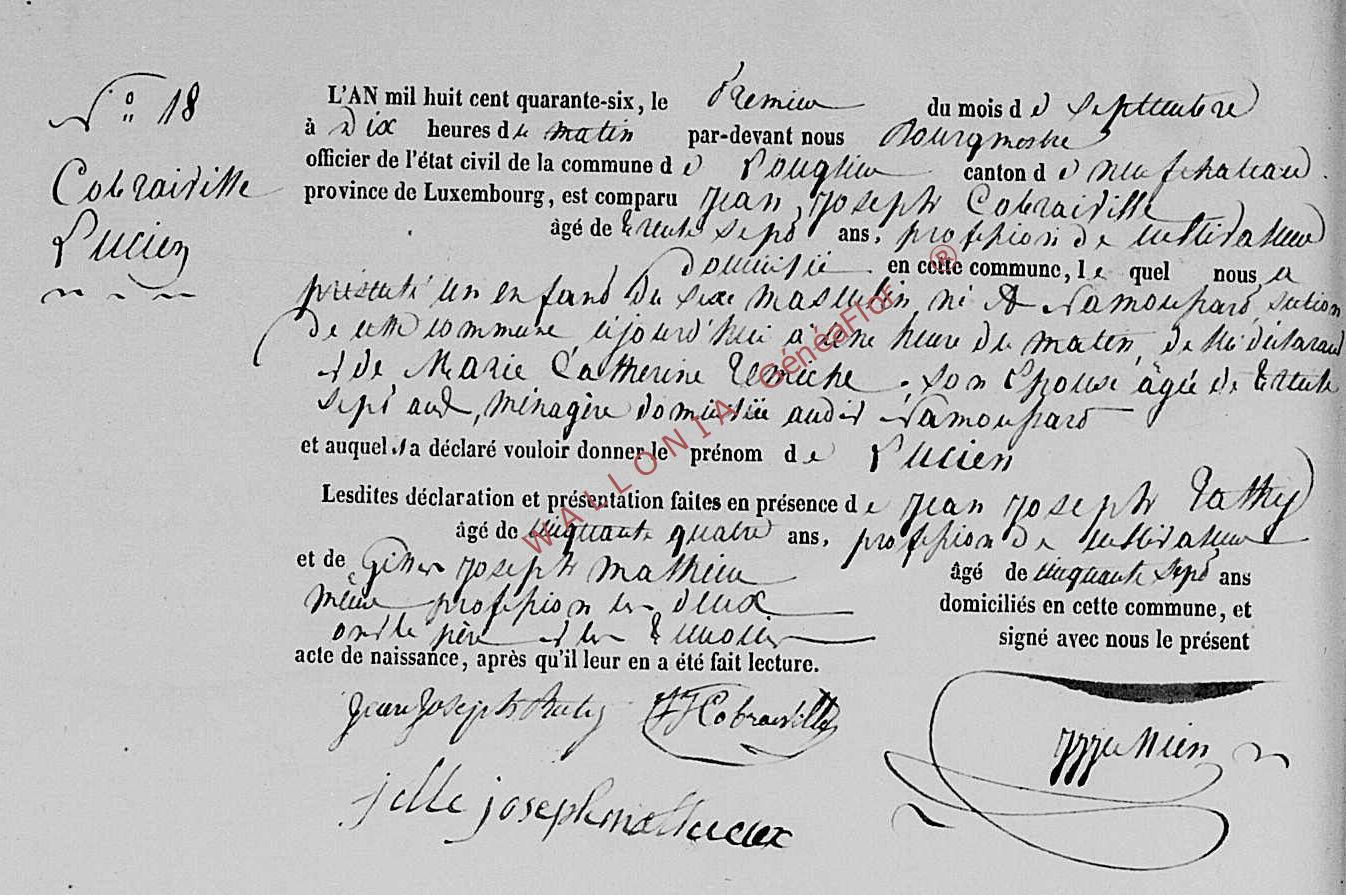 N° 18
Cobraiville
Lucien
L'AN mil huit cent quarante-six, le Premier du mois de septembre
à dix heures du matin par-devant nous Bourgmestre
officier de l'état civil de la commune de Longlier canton de neufchateau
province de Luxembourg, est comparu Jean Joseph Cobraiville
âgé de trente sept ans, profession de cultivateur
domicilié en cette commune, lequel nous a
présenté un enfant du sexe masculin né à Lamoupart, section
de cette commune, aujourd'hui à une heure du matin, de lui déclarant
et de Marie Catherine, son épouse âgée de trente
sept ans, ménagère domiciliée audit Lamoupart
et auquel il a déclaré vouloir donner le prénom de Lucien
Lesdites déclaration et présentation faites en présence de Jean Joseph
âgé de cinquante quatre ans, profession de cultivateur
et de Joseph Mathieu âgé de cinquante sept ans
même profession les deux domiciliés en cette commune, et
ont le père et les témoins signé avec nous le présent
acte de naissance, après qu'il leur en a été fait lecture.
Jean Joseph
JJ Cobraiville
joseph
WALLONIA GénéaFlor ®